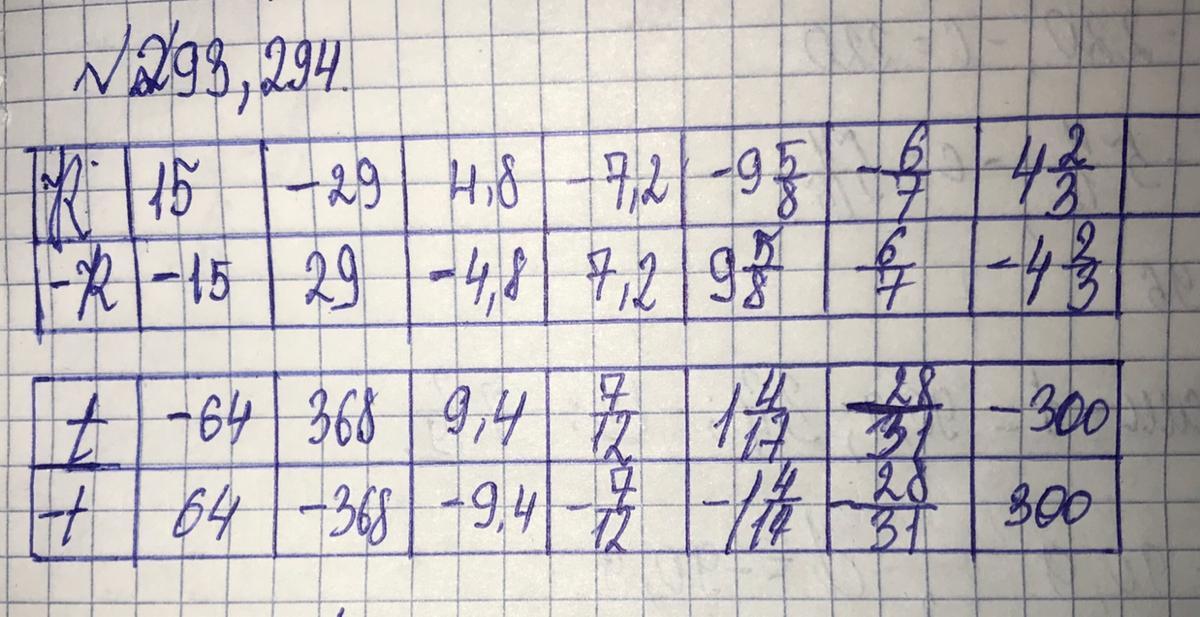 √293, 294.
K 15 -29 4,8 -7,2 -9 5/8 -6/7 4 2/3
-K -15 29 -4,8 7,2 9 5/8 6/7 -4 2/3
t -64 368 9,4 7/12 1 4/17 -28/31 -300
-t 64 -368 -9,4 -7/12 -1 4/17 -28/31 300